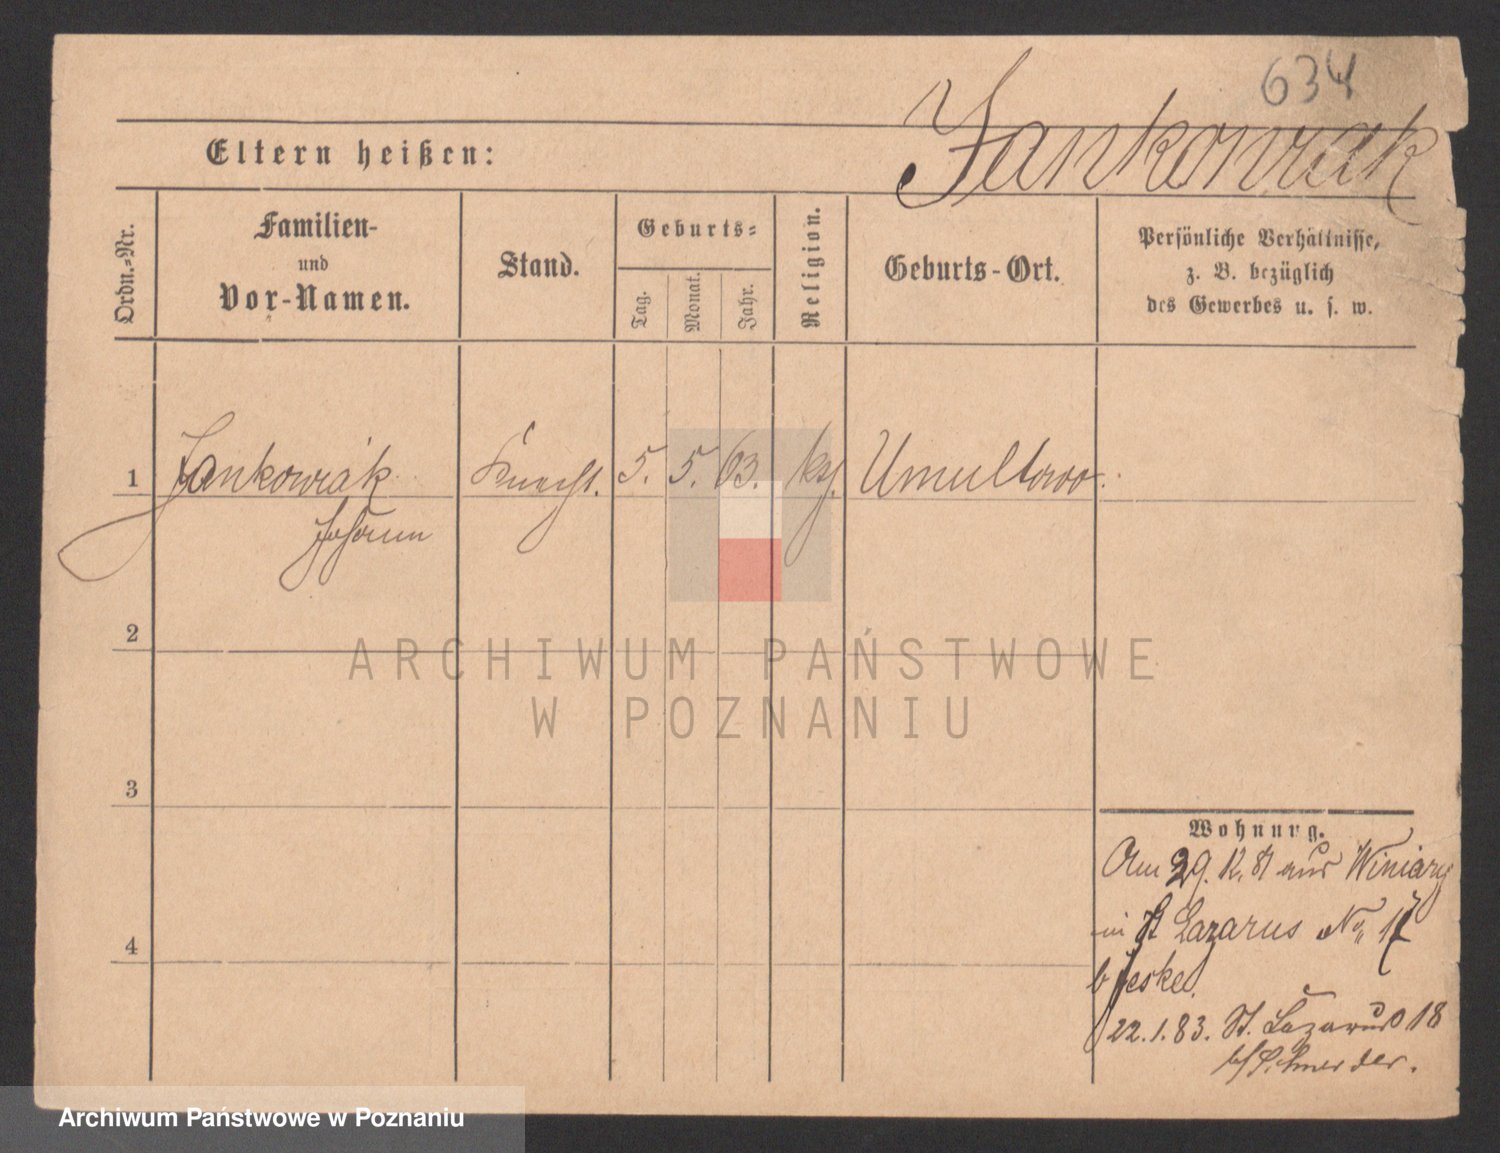 634
Jankowiak
Eltern heißen:
Ordn.-Nr.
Familien-
und
Vor-Namen.
Stand.
Geburts-
Tag.
Monat.
Jahr.
Religion.
Geburts-Ort.
Persönliche Verhältnisse,
z. B. bezüglich
des Gewerbes u. s. w.
1 Jankowiak Knecht. 5. 5. 63. kth. Umultowo.
Johann
2
ARCHIWUM PAŃSTWOWE
W POZNANIU
3
Wohnung.
Am 29. 12. 81 aus Winiary
in St Lazarus No 17
b Jeske.
4
22.1.83. St. Lazarus 18
b/ Schneider.
Archiwum Państwowe w Poznaniu